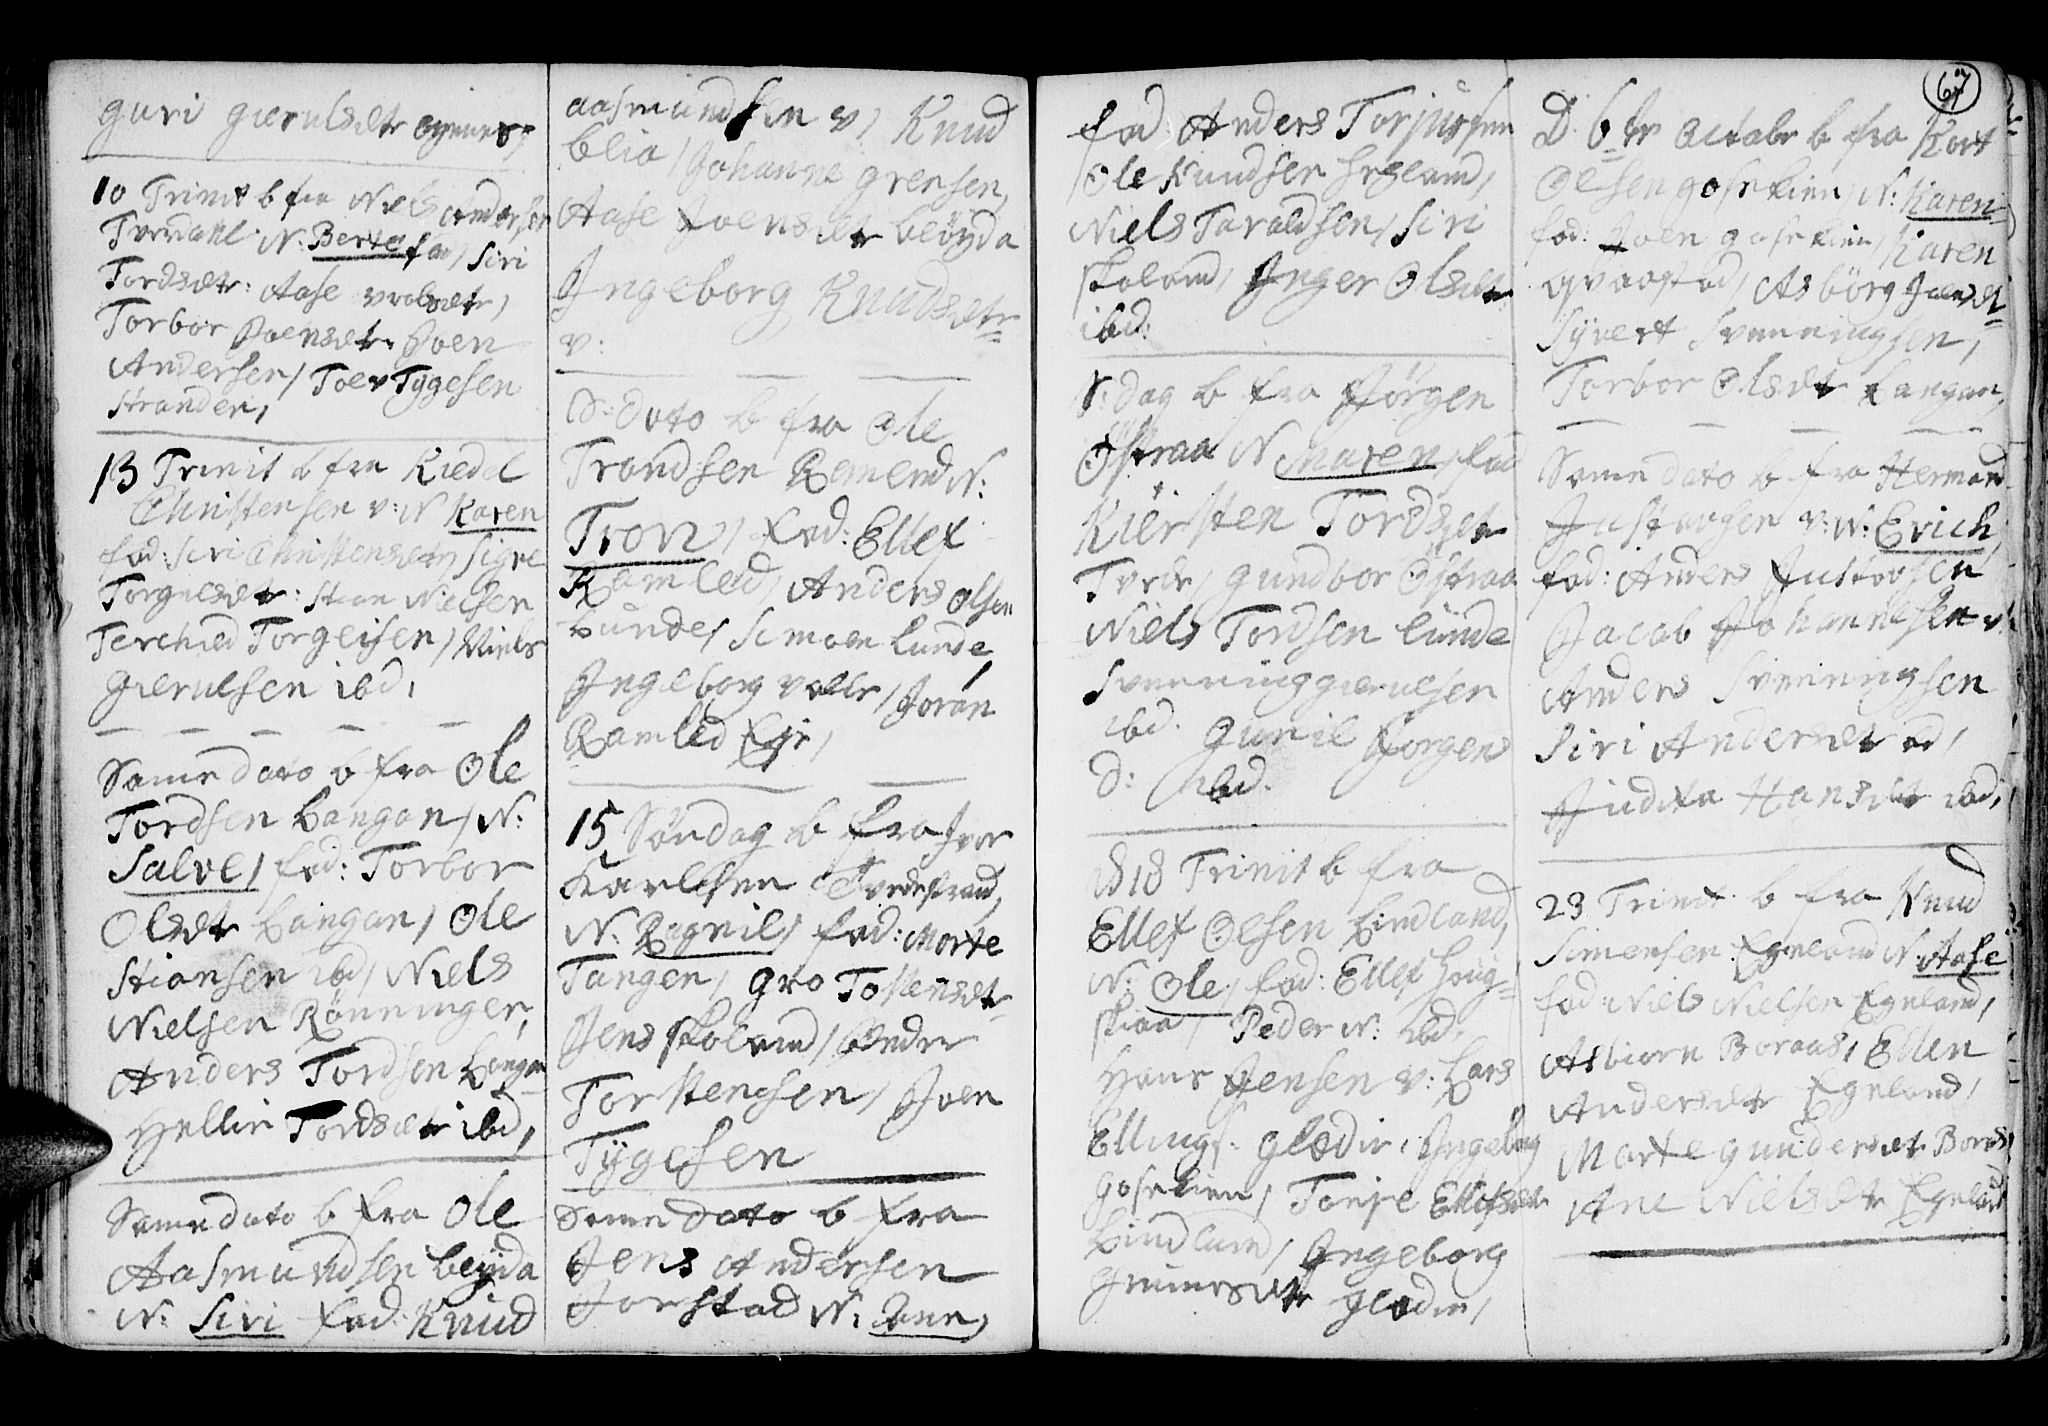 Guri Gierulsdtr
10 Trinit b fra Niels Andersen
Tverdahl N: Berte fad, Siri
Tordsdtr: Aase
Torbor Joensdtr Joen
Andersen, Toer Tygesen
Stranden,
13 Trinit b fra Kiedel
Christensen v: N Karen
fad: Siri Christensdtr, Signe
Torgilsdtr: Stian Nielsen
Terchield Torgeisen, Niels
Gierulsen ibd,
Same dato b fra Ole
Tordsen Langan, N:
Salve, fad: Torbor
Olsdtr Langan, Ole
Stiansen ibd, Niels
Nielsen Rönninger,
Anders Tordsen Langan
Hellin Tordsdtr ibd,
Same dato b fra Ole
Aasmundsen
N: Siri fad: Knud
Aasmundsen v, Knud
blia, Johanne Grensen,
Aase Joensdtr
Ingeborg Knudsdtr
v:
S: dato b fra Ole
Trondsen N:
Tron, fad: Ellef
Ramled, Anders Olsen
Lunde, Simon Lunde
Ingeborg Valle, Joran
Ramled Eje,
15 Söndag b fra Iver
Karlsen Tvedestrand,
N: Ragnil, fad: Marte
Tangen, Gro Tostensdtr
Jens Skoland,
Torstensen, Joen
Tÿgesen
Same dato b fra
Jens Andersen
N: Aane,
67
fad: Anders Torjusen
Ole Knudsen
Niels Taraldsen, Siri
Skoland, Inger Olsdtr
ibd:
S: Dag b fra Jörgen
Östraa N Maren, fad
Kiersten Tordsdtr
Tvede, Gundbor Östraa
Niels Tordsen Lunde
Svenning Gierulsen
ibd. Gunil Jorgens
D: ibd.
18 Trinit b fra
Ellef Olsen Lindland,
N: Ole, fad: Ellef Houg-
skiaa, Peder N: ibd,
Hans Jensen v: Lars
Ellings: Glødir, Ingeborg
Gosekien, Tonje Ellefsdtr
Lindland, Ingeborg
Glødir,
D. 6te Octobr b fra Kort
Olsen Gosekien, N: Karen
fad: Joen Gosekien, Karen
Qvaastad, Asbörg Joensdt
Syvert Svenningsen,
Torbor Olsdtr Langan,
Same dato b fra Herman
Justvosen v: N: Erich,
fad: Anders Justvosen
Jacob Johannesen v:
Anders Svenningsen
Siri Andersdtr ed,
Judita Hansdtr ibd,
23 Trinit b fra Knud
Simensen Egeland N: Aase
fad: Niels Nielsen Egeland,
Asbiørn Boraas, Ellen
Andersdtr Egeland,
Marte Gundersdtr Boraas,
Ane Nielsdtr Egeland